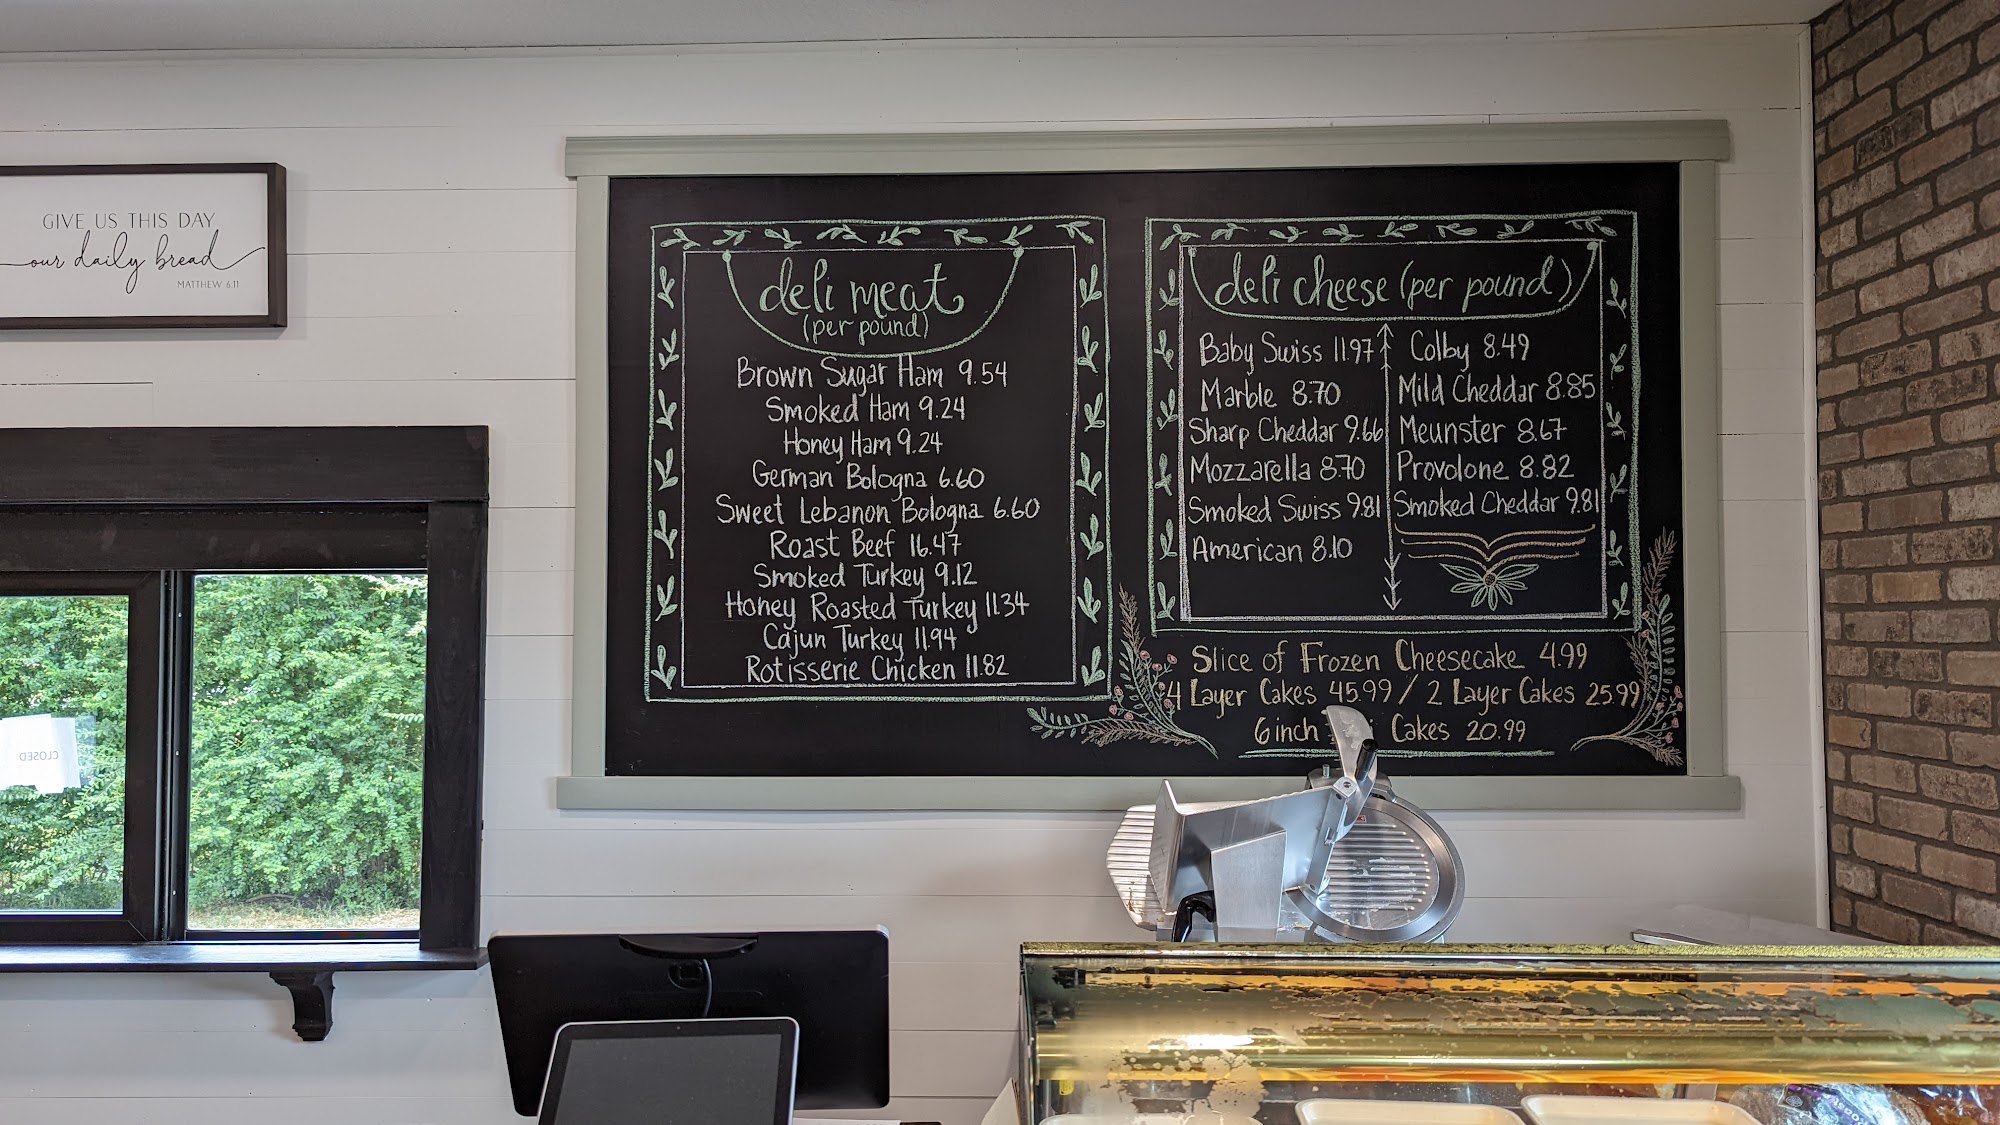 GIVE US THIS DAY
our daily bread
MATTHEW 6:11
CLOSED
deli meat
(per pound)
Brown Sugar Ham 9.54
Smoked Ham 9.24
Honey Ham 9.24
German Bologna 6.60
Sweet Lebanon Bologna 6.60
Roast Beef 16.47
Smoked Turkey 9.12
Honey Roasted Turkey 11.34
Cajun Turkey 11.94
Rotisserie Chicken 11.82
deli cheese (per pound)
Baby Swiss 11.97
Marble 8.70
Sharp Cheddar 9.66
Mozzarella 8.70
Smoked Swiss 9.81
American 8.10
Colby 8.49
Mild Cheddar 8.85
Meunster 8.67
Provolone 8.82
Smoked Cheddar 9.81
Slice of Frozen Cheesecake 4.99
4 Layer Cakes 45.99 / 2 Layer Cakes 25.99
6 inch Cakes 20.99